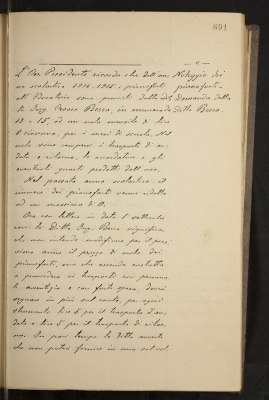 891
L'On. Presidente ricorda che dell'an-
no scolastico 1914-1915 i pianoforti
all'Educatorio sono provvisti dalla dit-
ta Ing. Cesare Barra, in numero da
13 a 15, ad un nolo mensile di lire
8 ciascuno, per i mesi di scuola. Nel
nolo sono compresi i trasporti di an-
data e ritorno, le accordature e gli
eventuali guasti prodotti dall'uso.
Nel passato anno scolastico il
numero dei pianoforti venne ridotto
ad un massimo di 9.
Ora con lettera in data 1 settembre
corr. la Ditta Ing. Barra significa
che non intende modificare per il pros-
simo anno il prezzo di nolo dei
pianoforti, ma che essendo costretta
a provvedere ai trasporti con persona-
le avventizio e con forte spesa, dovrà
segnare in più sul conto, per ogni
strumento lire 5 per il trasporto d'an-
data e lire 5 per il trasporto di ritor-
no. In pari tempo la ditta avverte
che non potrà fornire in una sol vol
Noleggio dei
pianoforti -
Domanda della
Ditta Barra.